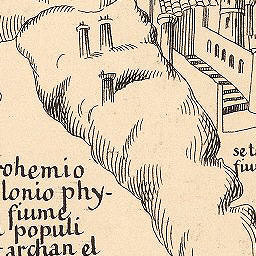 rohemio
lonio phy-
fiume
populi
archan el
se t
fiu